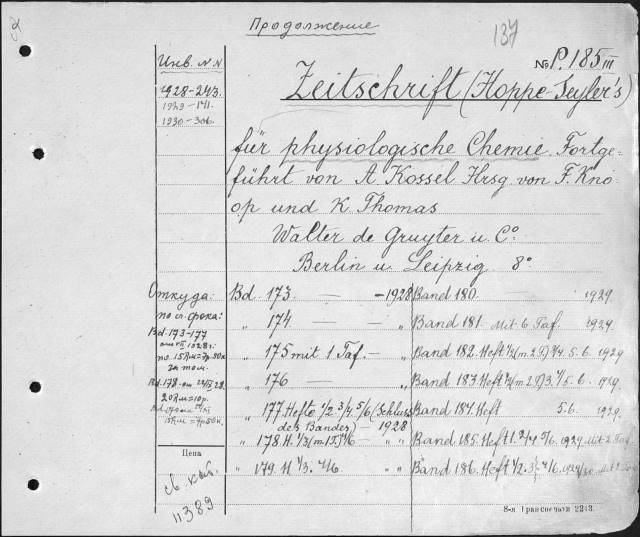 Продолжение
137
Инв. N.N
No P.185 III
Zeitschrift (Hoppe-Seyler's)
1928-243.
1929-141.
1930-306.
für physiologische Chemie Fortge-
führt von A Kossel Hrsg. von F. Kno-
op und K. Thomas
Walter de Gruyter u. Co.
Berlin u. Leipzig. 8°
Откуда: Bd. 173 — — 1928 Band 180. 1929.
по сч. срока: „ 174 — — „ Band 181. Mit 6 Taf. 1929.
Bd. 173-177
„ 175 mit 1 Taf. — „ Band 182. Heft 1/2 (m. 2 T.) 3/4. 5.6. 1929
по 15RM=7р.50к
за том.
„ 176 — „ Band 183. Heft 1/2 (m 2T) 3.4/5 6. 1929.
Bd. 178.
20RM=10р.
„ 177 Hefte 1/2 3/4 5/6 (Schluss Band 184. Heft 5.6. 1929.
15RM=7р50к.
des Bandes) — 1928
„ 178. H. 1/3 (m 1T) 4/6 — „ „ Band 185. Heft 1.2 3/4 5/6. 1929. Mit 2 Taf.
Цена
„ 179. H 1/3. 4/6 „ „ Band 186. Heft 1/2. 3/4 5/6. 1929/30. Mit 2
св. куб.
11389
8-я Транспечати 2213.